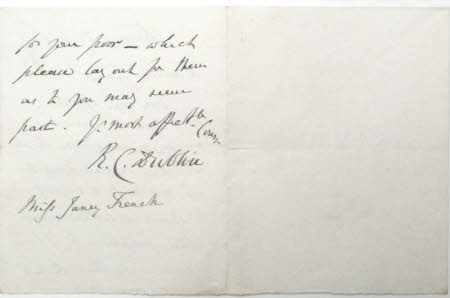 for your poor – which
please lay out for them
as to you may seem
past. Yr most affecte
Cous.
R. C. Dublin
Miss Janey French